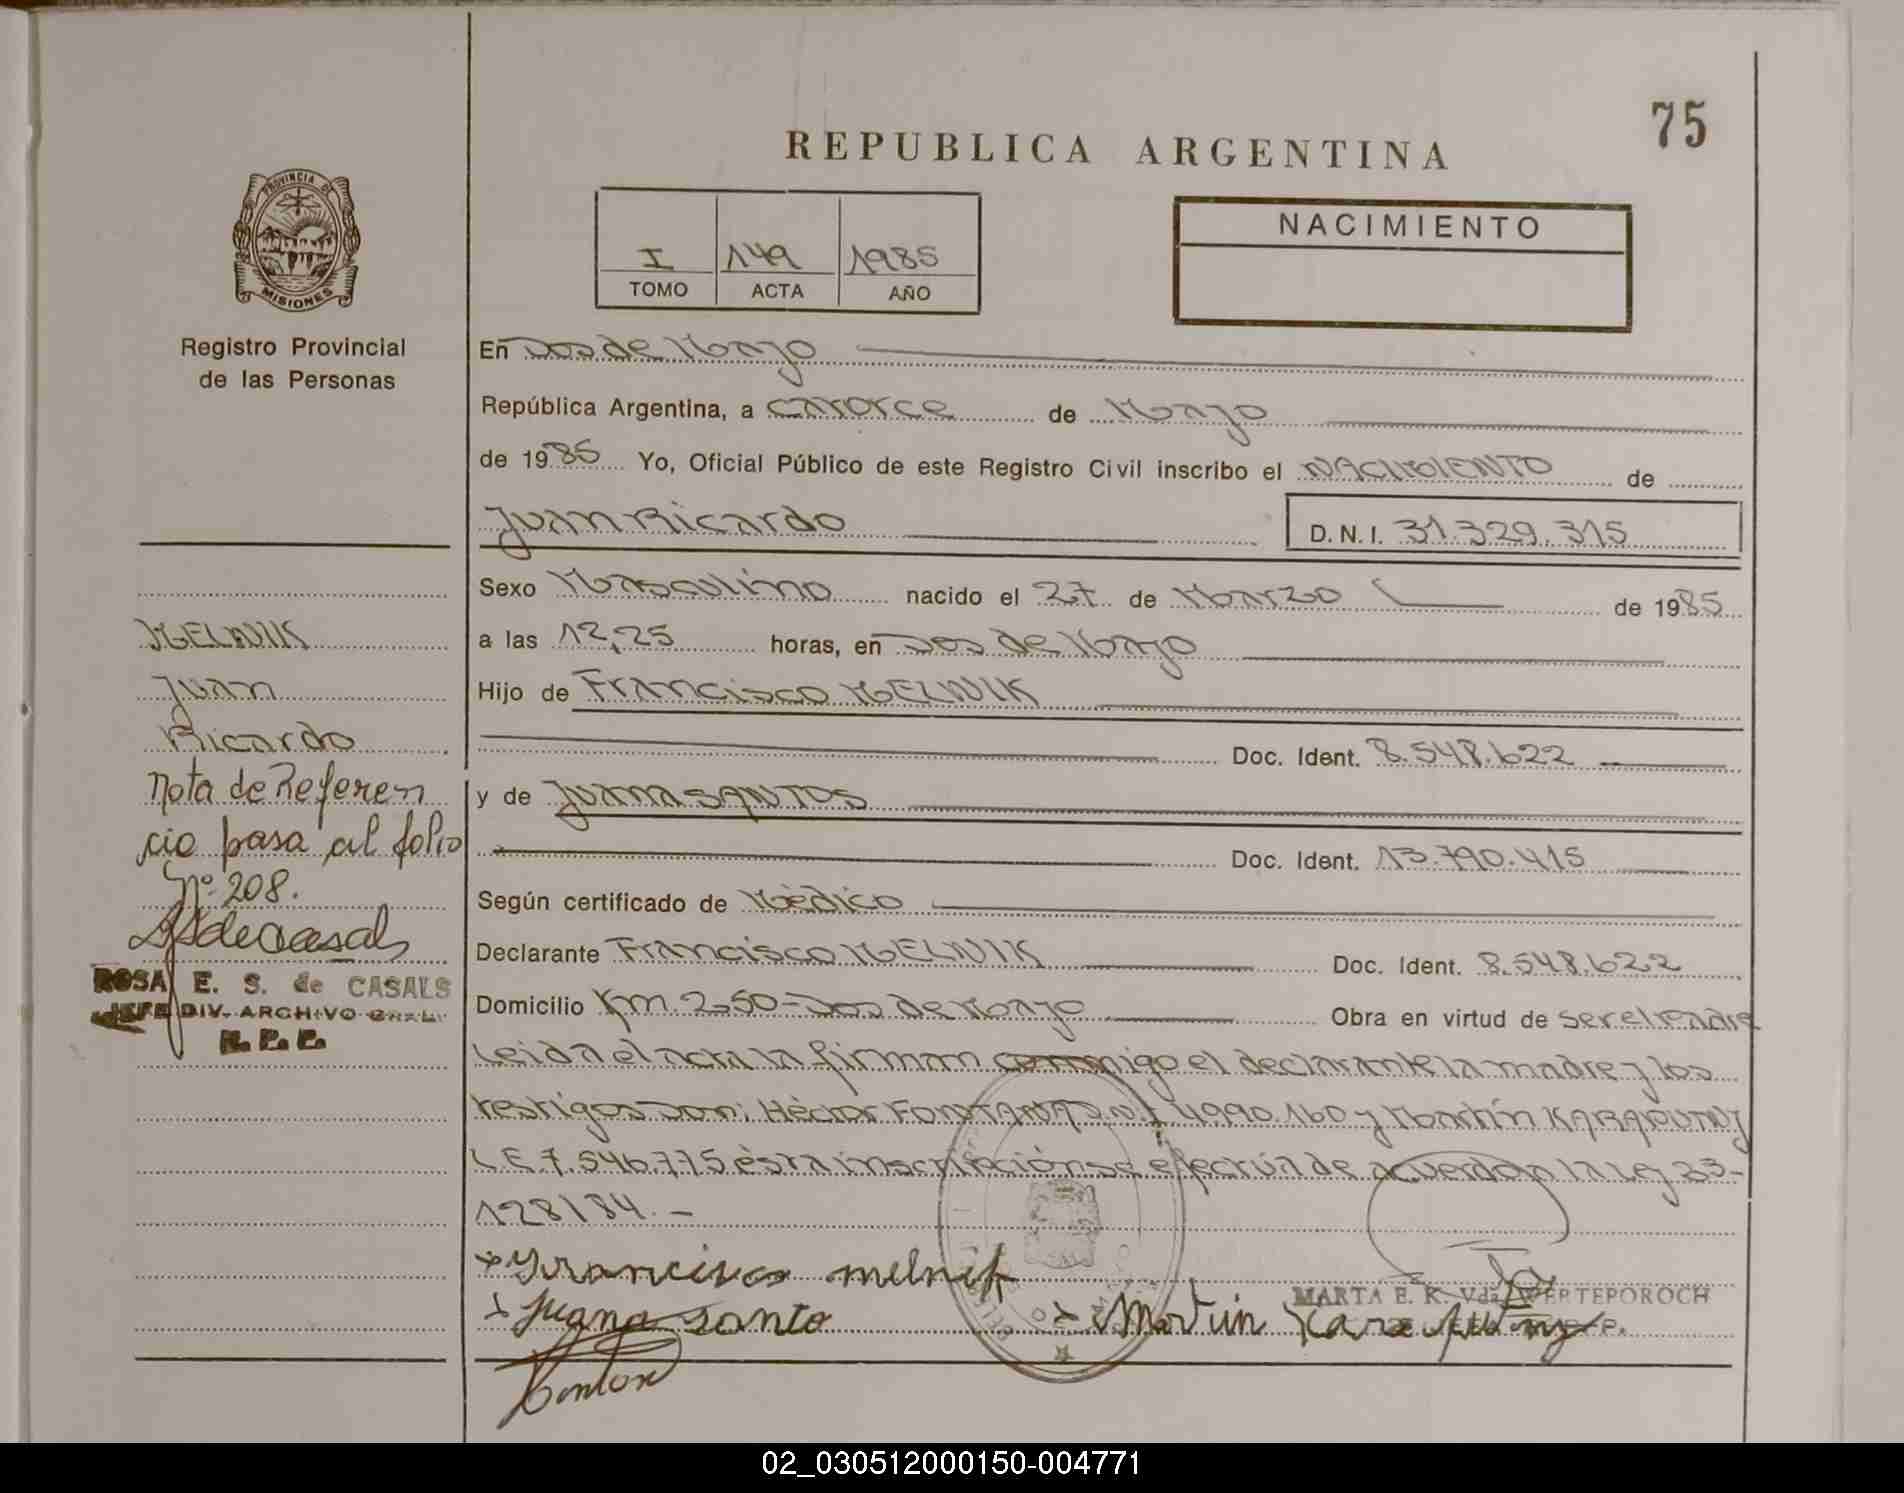 75
REPUBLICA ARGENTINA
PROVINCIA DE
MISIONES
I 149 1985
TOMO ACTA AÑO
NACIMIENTO
Registro Provincial
de las Personas
En Dos de Mayo
República Argentina, a catorce de Mayo
de 1985 Yo, Oficial Público de este Registro Civil inscribo el NACIMIENTO de
Juan Ricardo D.N.I. 31.329.315
Sexo Masculino nacido el 27 de Marzo de 1985
a las 12,25 horas, en Dos de Mayo
Hijo de Francisco MELNIK
Doc. Ident. 8.548.622
y de Juana SANTOS
Doc. Ident. 13.790.415
Según certificado de Mèdico
Declarante Francisco MELNIK Doc. Ident. 8.548.622
Domicilio Km. 250-Dos de Mayo Obra en virtud de ser el Padre
Leida el acta la firman conmigo el declarante la madre y los
testigos Don: Hèctor FONTANA D.N.I. 4.990.160 y Martín KARAPUTNJ
L.E. 7.546.775 èsta inscripciòn se efectúa de acuerdo a la Ley 23-
128/84.-
Francisco melnik
Juana santo
Martin Karaputny
MARTA E. K. Vda. WERTEPOROCH
MELNIK
Juan
Ricardo
Nota de Referen
cia pasa al folio
Nº 208.
ROSA E. S. de CASALS
JEFE DIV. ARCHIVO GRAL.
R. P. P.
02_030512000150-004771